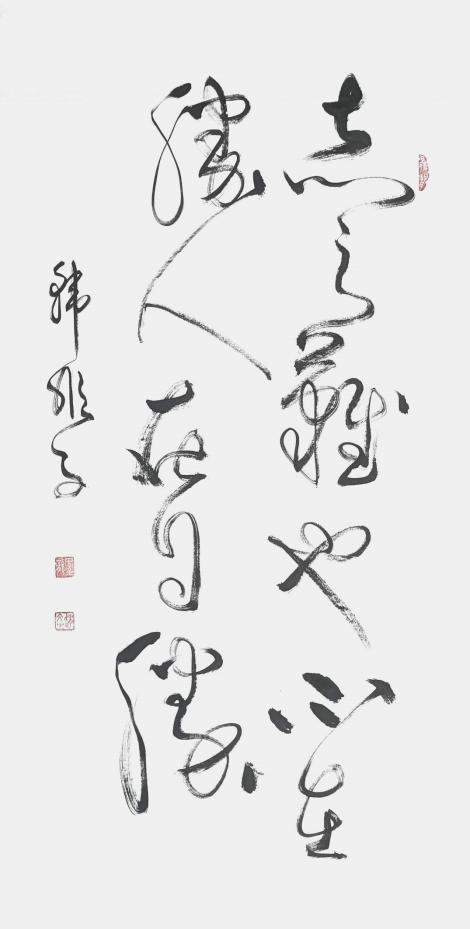 志之難也不在
勝人在自勝
韓非子